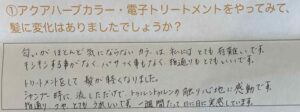 ①アクアハーブカラー・電子トリートメントをやってみて、
髪に変化はありましたでしょうか？
匂いがほとんど気にならないカラーは、私にはとても有難いです。
キシキシする事がなく、パサつく事もなく、指通りもとてもいいです。
トリートメントをして髪が軽くなりました。
シャンプー時に、流しただけで、トゥルントゥルンの触り心地に感動です。
指通り、つや、とてもうれしいです。一週間たった今日に実感しています。